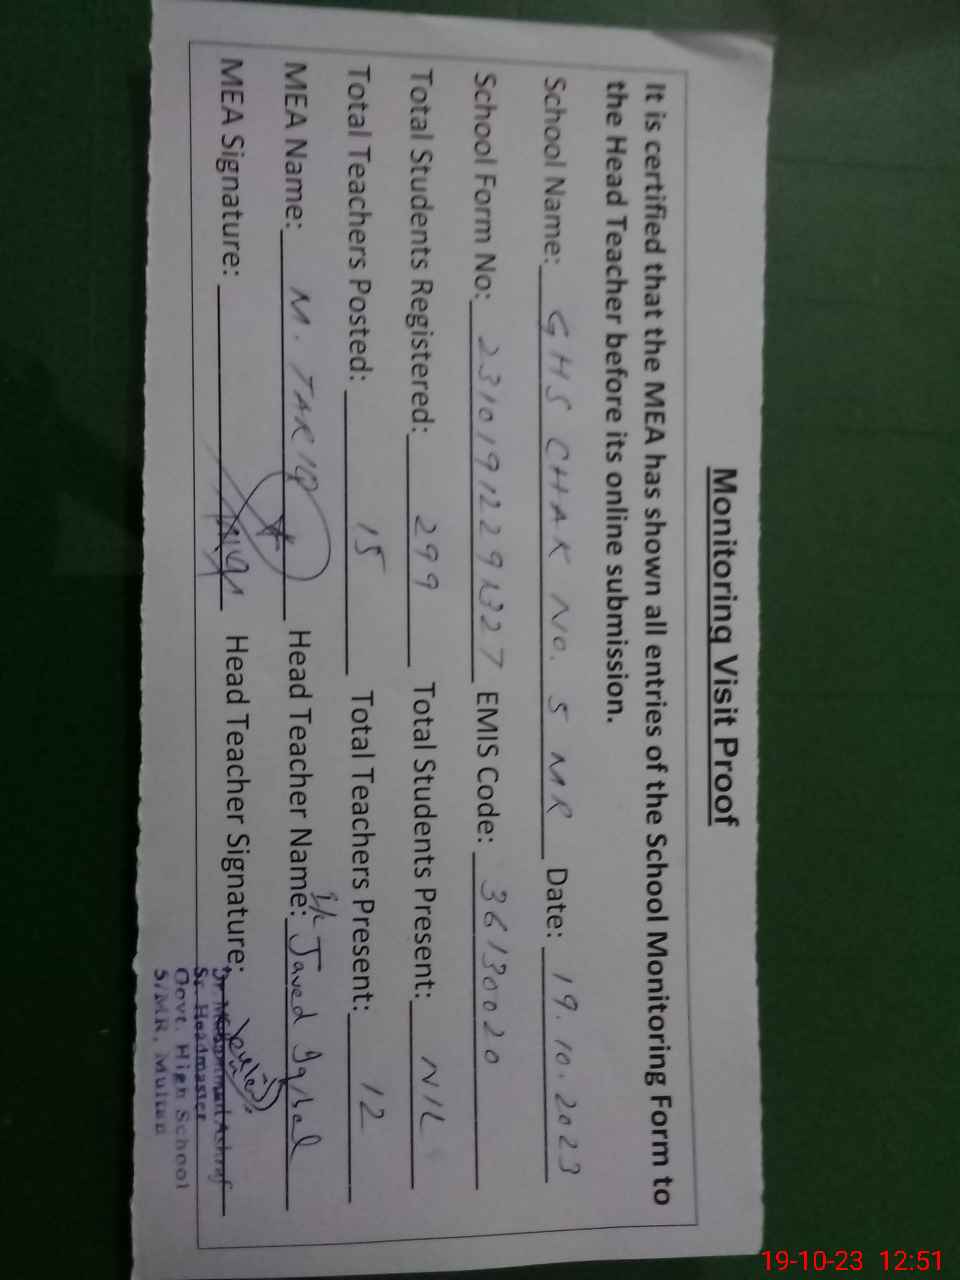 Monitoring Visit Proof
It is certified that the MEA has shown all entries of the School Monitoring Form to
the Head Teacher before its online submission.
School Name: GHS CHAK NO. 5 MR Date: 19.10.2023
School Form No: EMIS Code: 36130020
Total Students Registered: 299 Total Students Present: NIL
Total Teachers Posted: 15 Total Teachers Present: 12
MEA Name: M. TARIQ Head Teacher Name: I/C Javed Iqbal
MEA Signature: Head Teacher Signature:
Dr Muhammad Ashraf
Sr. Headmaster
Govt. High School
5/MR, Multan
19-10-23 12:51